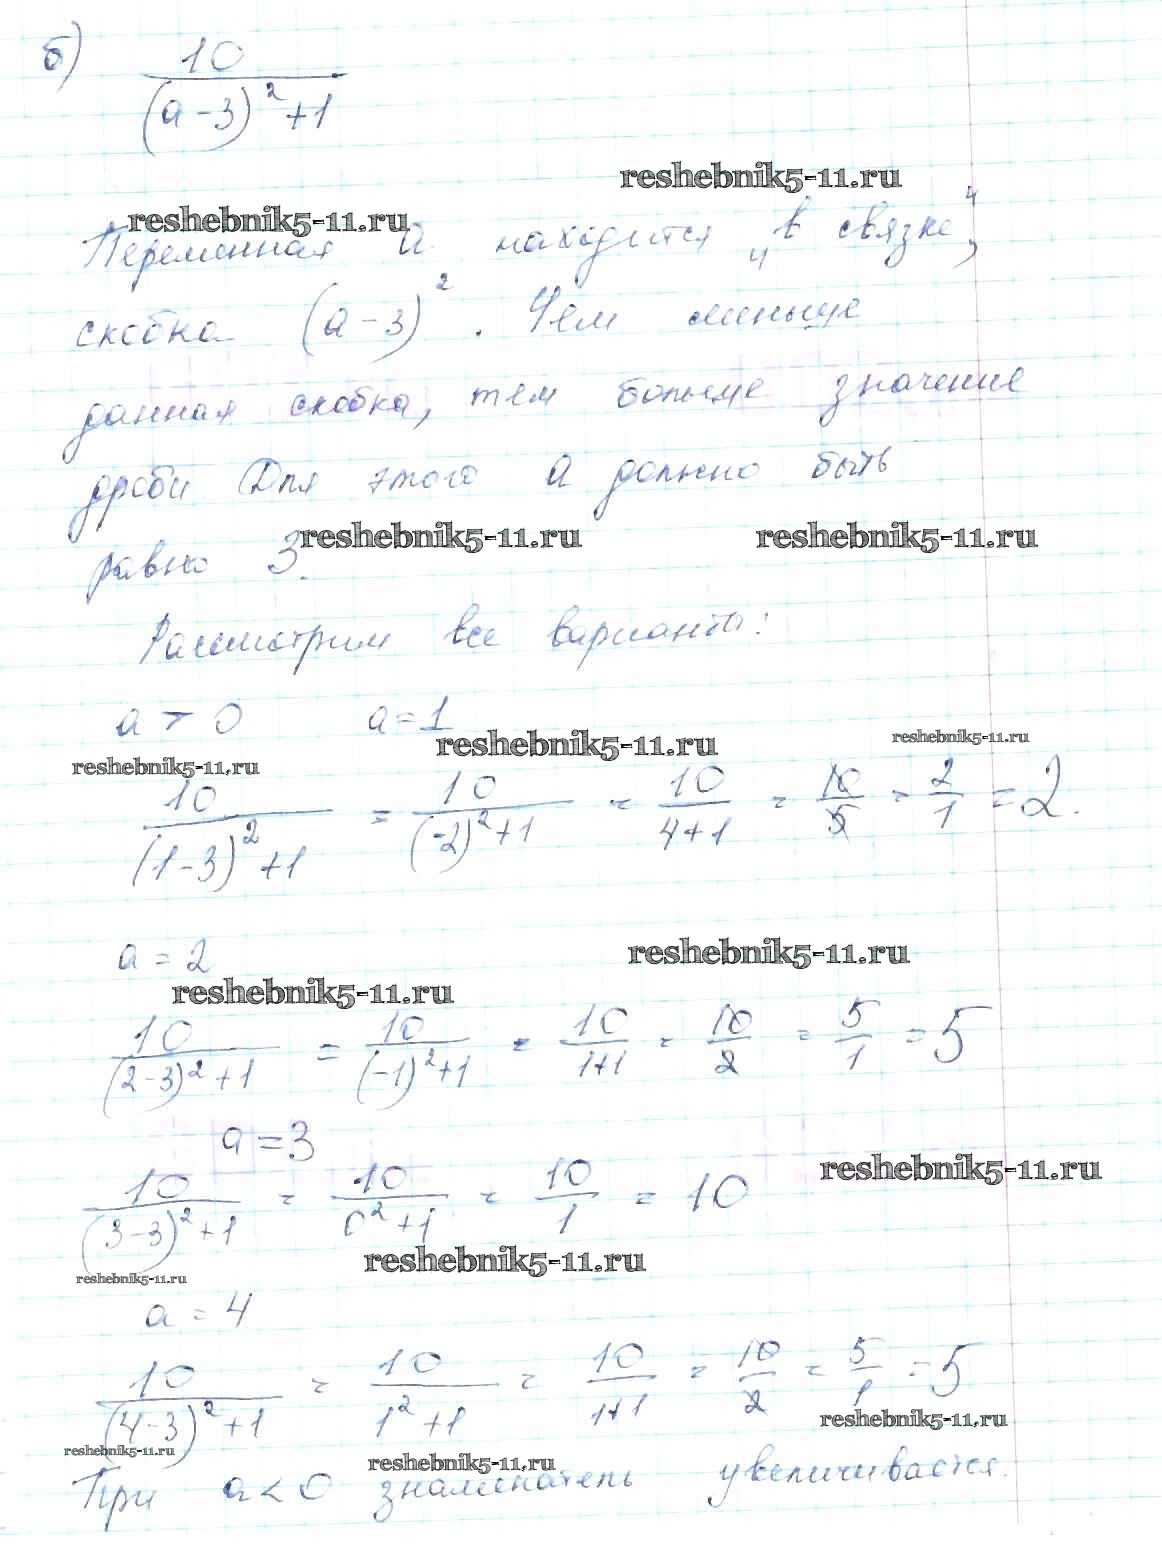 б) 10
(a-3)² +1
reshebnik5-11.ru
reshebnik5-11.ru
Переменная а находится "в связке",
скобка (a-3)². Чем меньше
данная скобка, тем больше значение
дроби Для этого а должно быть
равно 3.
reshebnik5-11.ru reshebnik5-11.ru
Рассмотрим все варианты:
a > 0 a=1
reshebnik5-11.ru reshebnik5-11.ru reshebnik5-11.ru
10/(1-3)²+1 = 10/(-2)²+1 = 10/4+1 = 10/5 = 2/1 = 2.
a = 2
reshebnik5-11.ru
reshebnik5-11.ru
10/(2-3)²+1 = 10/(-1)²+1 = 10/1+1 = 10/2 = 5/1 = 5
a = 3
reshebnik5-11.ru
10/(3-3)²+1 = 10/0²+1 = 10/1 = 10
reshebnik5-11.ru
reshebnik5-11.ru
a = 4
10/(4-3)²+1 = 10/1²+1 = 10/1+1 = 10/2 = 5/1 = 5
reshebnik5-11.ru
reshebnik5-11.ru reshebnik5-11.ru
При a < 0 знаменатель увеличивается.